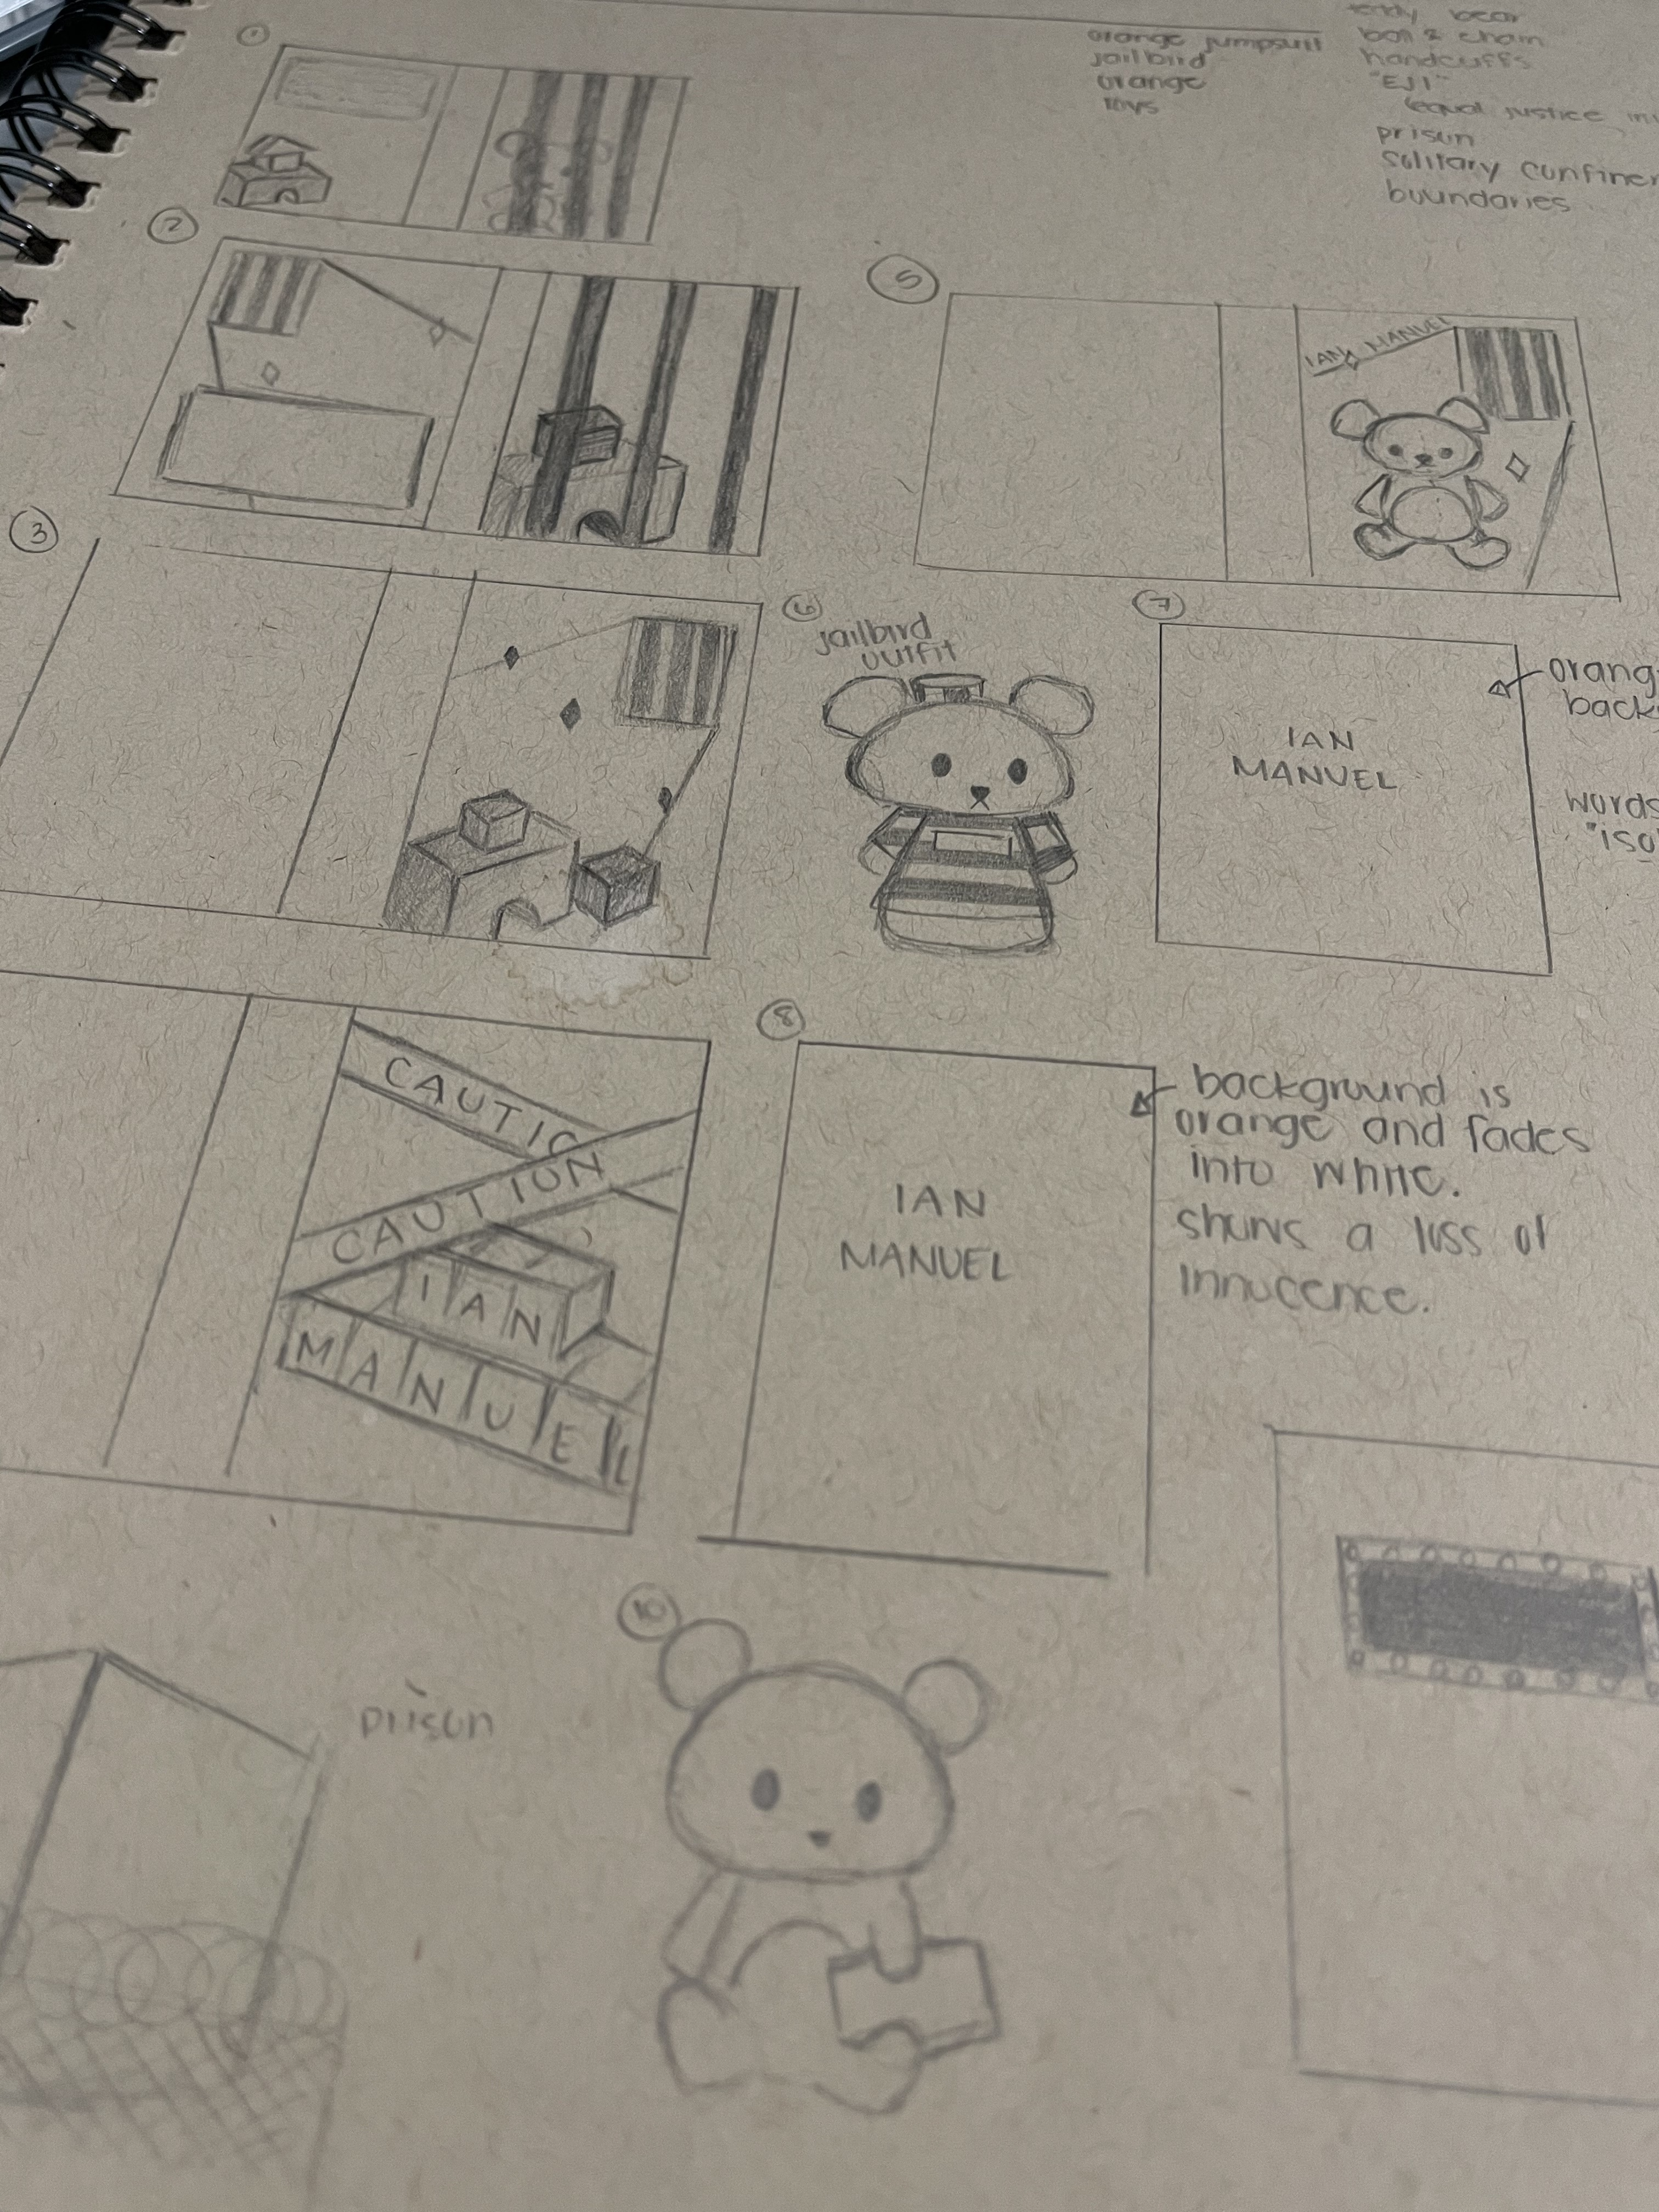 orange jumpsuit
jailbird
orange
toys
teddy bear
ball & chain
handcuffs
"EJI"
(equal justice
prison
solitary
boundaries
1
2
5
IAN MANUEL
3
6
jailbird
outfit
7
IAN
MANUEL
8
CAUTIO
CAUTION
IAN
MANUEL
IAN
MANUEL
background is
orange and fades
into white.
shows a loss of
innocence.
10
prison